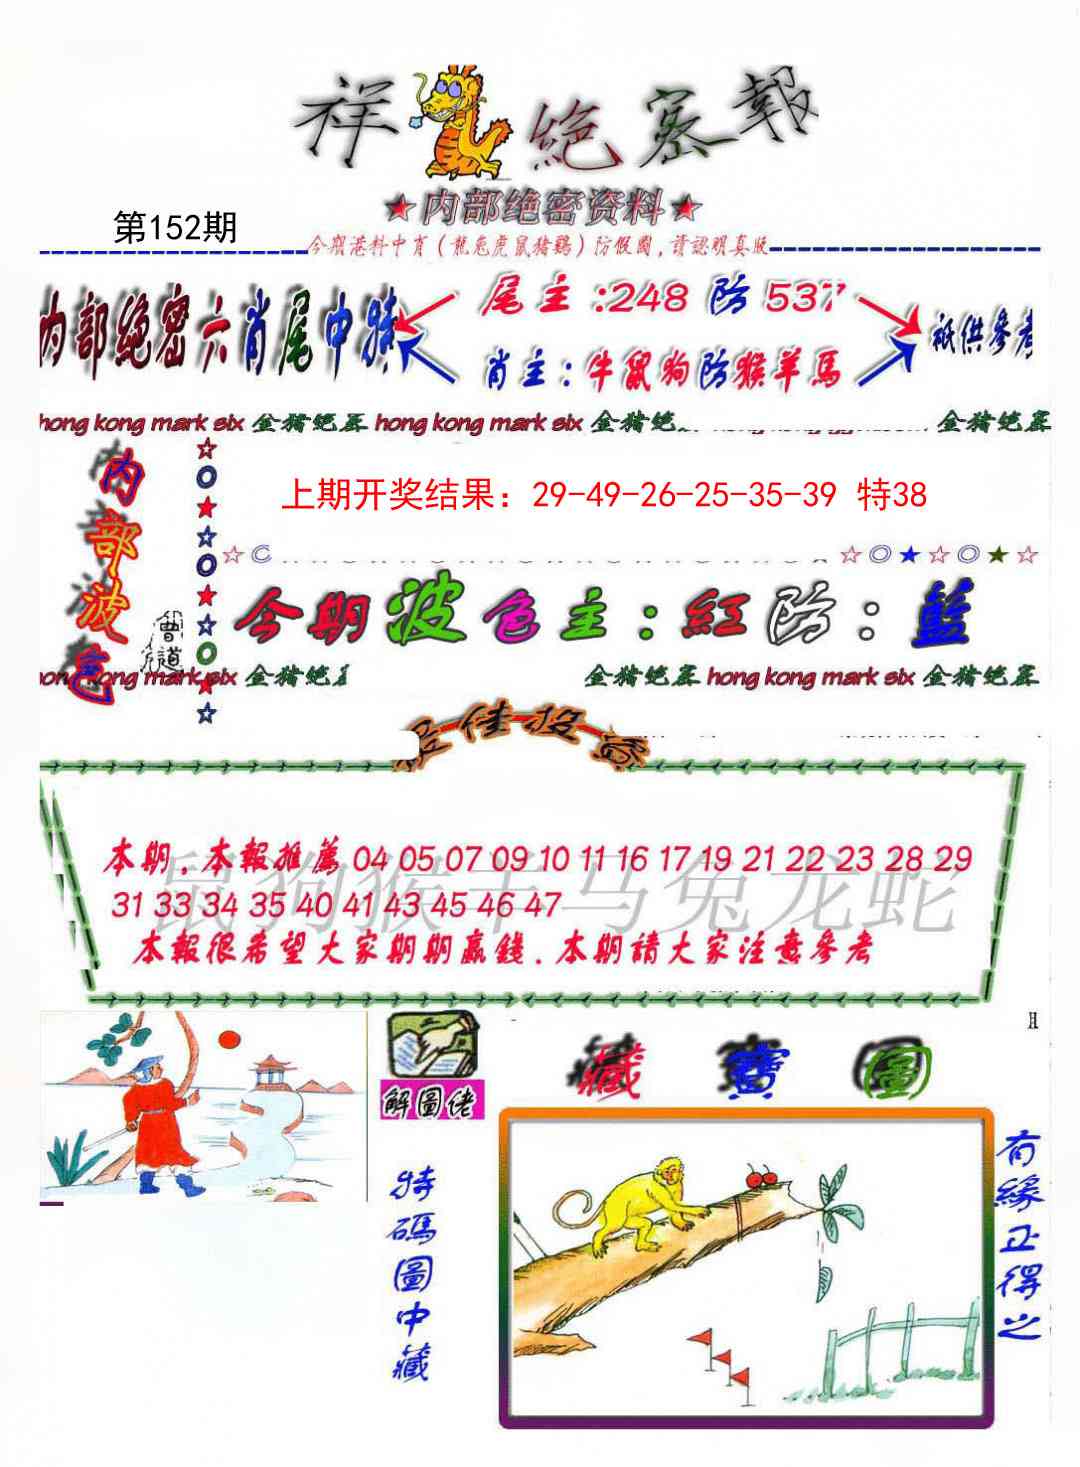 祥 絕密報
★内部绝密资料★
第152期
今期港料中肖（龍兔虎鼠猪鷄）防假圖，請認明真版
内部绝密六肖尾中特
尾主：248 防 537
肖主：牛鼠狗防猴羊馬
衹供參考
hong kong mark six 金猪绝密 hong kong mark six 金猪绝 金猪绝密
内部波色
曾道
上期开奖结果：29-49-26-25-35-39 特38
今期波色主：紅防：藍
hong kong mark six 金猪绝密 金猪绝密 hong kong mark six 金猪绝密
佳投
鼠狗猴羊马兔龙蛇
本期，本報推薦 04 05 07 09 10 11 16 17 19 21 22 23 28 29
31 33 34 35 40 41 43 45 46 47
本報很希望大家期期贏錢．本期請大家注意參考
解圖佬
特碼圖中藏
藏寶圖
有緣正得之